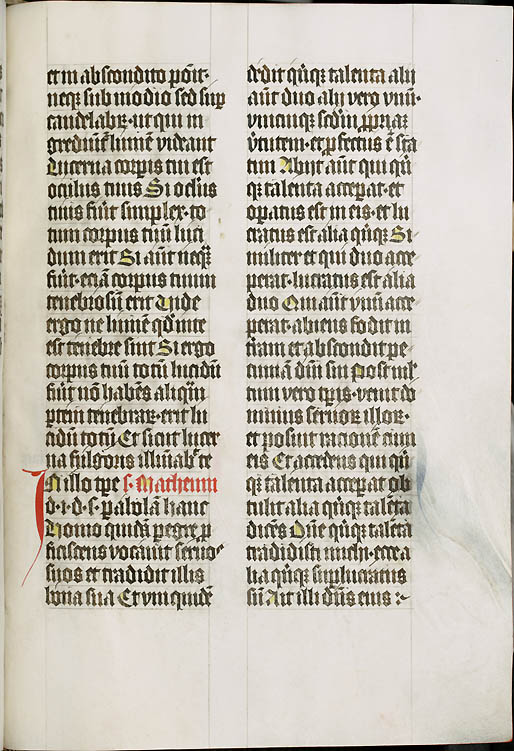 et in abscondito pōit·
neqꝫ sub modio sed sup̄
candelabrꝫ· ut qui in
grediūt̄ lumē videant
Lucerna corꝑis tui est
oculus tuus Si ocl̄us
tuus fūit simplex· to
tum corpus tuū luci
dum erit Si aūt neqᷓꝫ
fūit· eciā corpus tuum
tenebrosū erit Uide
ergo ne lumē qd̄ in te
est tenebre sint Si ergo
corpus tuū totū lucidū
fūit nō habēs aliqᷓm
ptem tenebrarꝫ· erit lu
cidū totū Et sicut lucer
na fulgoris illuīab' te
In illo tꝑe s. Matheum
d· i· d· s· pabolā hanc
Homo quidā pegre ꝓ
ficiscens vocauit seruo⁹
suos et tradidit illis
bona sua Et vni quidē
dedit qūqꝫ talenta alij
aūt duo alij vero vnū·
vnicuiqꝫ scd̄m ꝓpriaꝫ
v̄tutem· et ꝓfectus ē sta
tim Abijt aūt qui qū
qꝫ talenta acceꝑat· et
oꝑatus est in eis· et lu
cratus est alia qūqꝫ Si
militer et qui duo acce
perat· lucratus est alia
duo Qui aūt vnū acce
perat· abiens fodit in
t̄ram et abscondit pe
cuniā dn̄i sui Post mĺ
tum vero tꝑis· venit do
minus seruorꝫ illorꝫ·
et posuit racionē cum
eis Et accedens qui qū
qꝫ talenta acceꝑat ob
tulit alia qūqꝫ talēta
dicēs Dn̄e qūqꝫ talēta
tradidisti michi· ecce a
lia qūqꝫ suꝑlucratus
sū Ait illi dn̄s eius :~